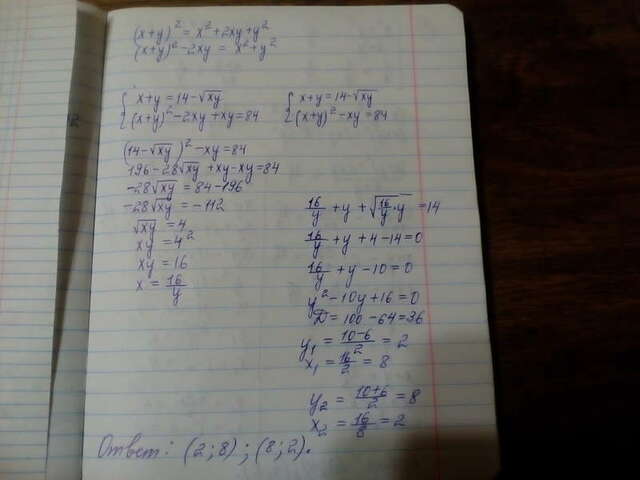 (x+y)² = x²+2xy+y²
(x+y)²-2xy = x²+y²
{ x+y=14-√xy
(x+y)²-2xy+xy=84
{ x+y=14-√xy
(x+y)²-xy=84
(14-√xy)²-xy=84
196-28√xy+xy-xy=84
-28√xy=84-196
-28√xy=-112
√xy=4
xy=4²
xy=16
x=16/y
16/y+y+√(16/y·y)=14
16/y+y+4-14=0
16/y+y-10=0
y²-10y+16=0
D=100-64=36
y₁=(10-6)/2=2
x₁=16/2=8
y₂=(10+6)/2=8
x₂=16/8=2
Ответ: (2;8);(8;2).